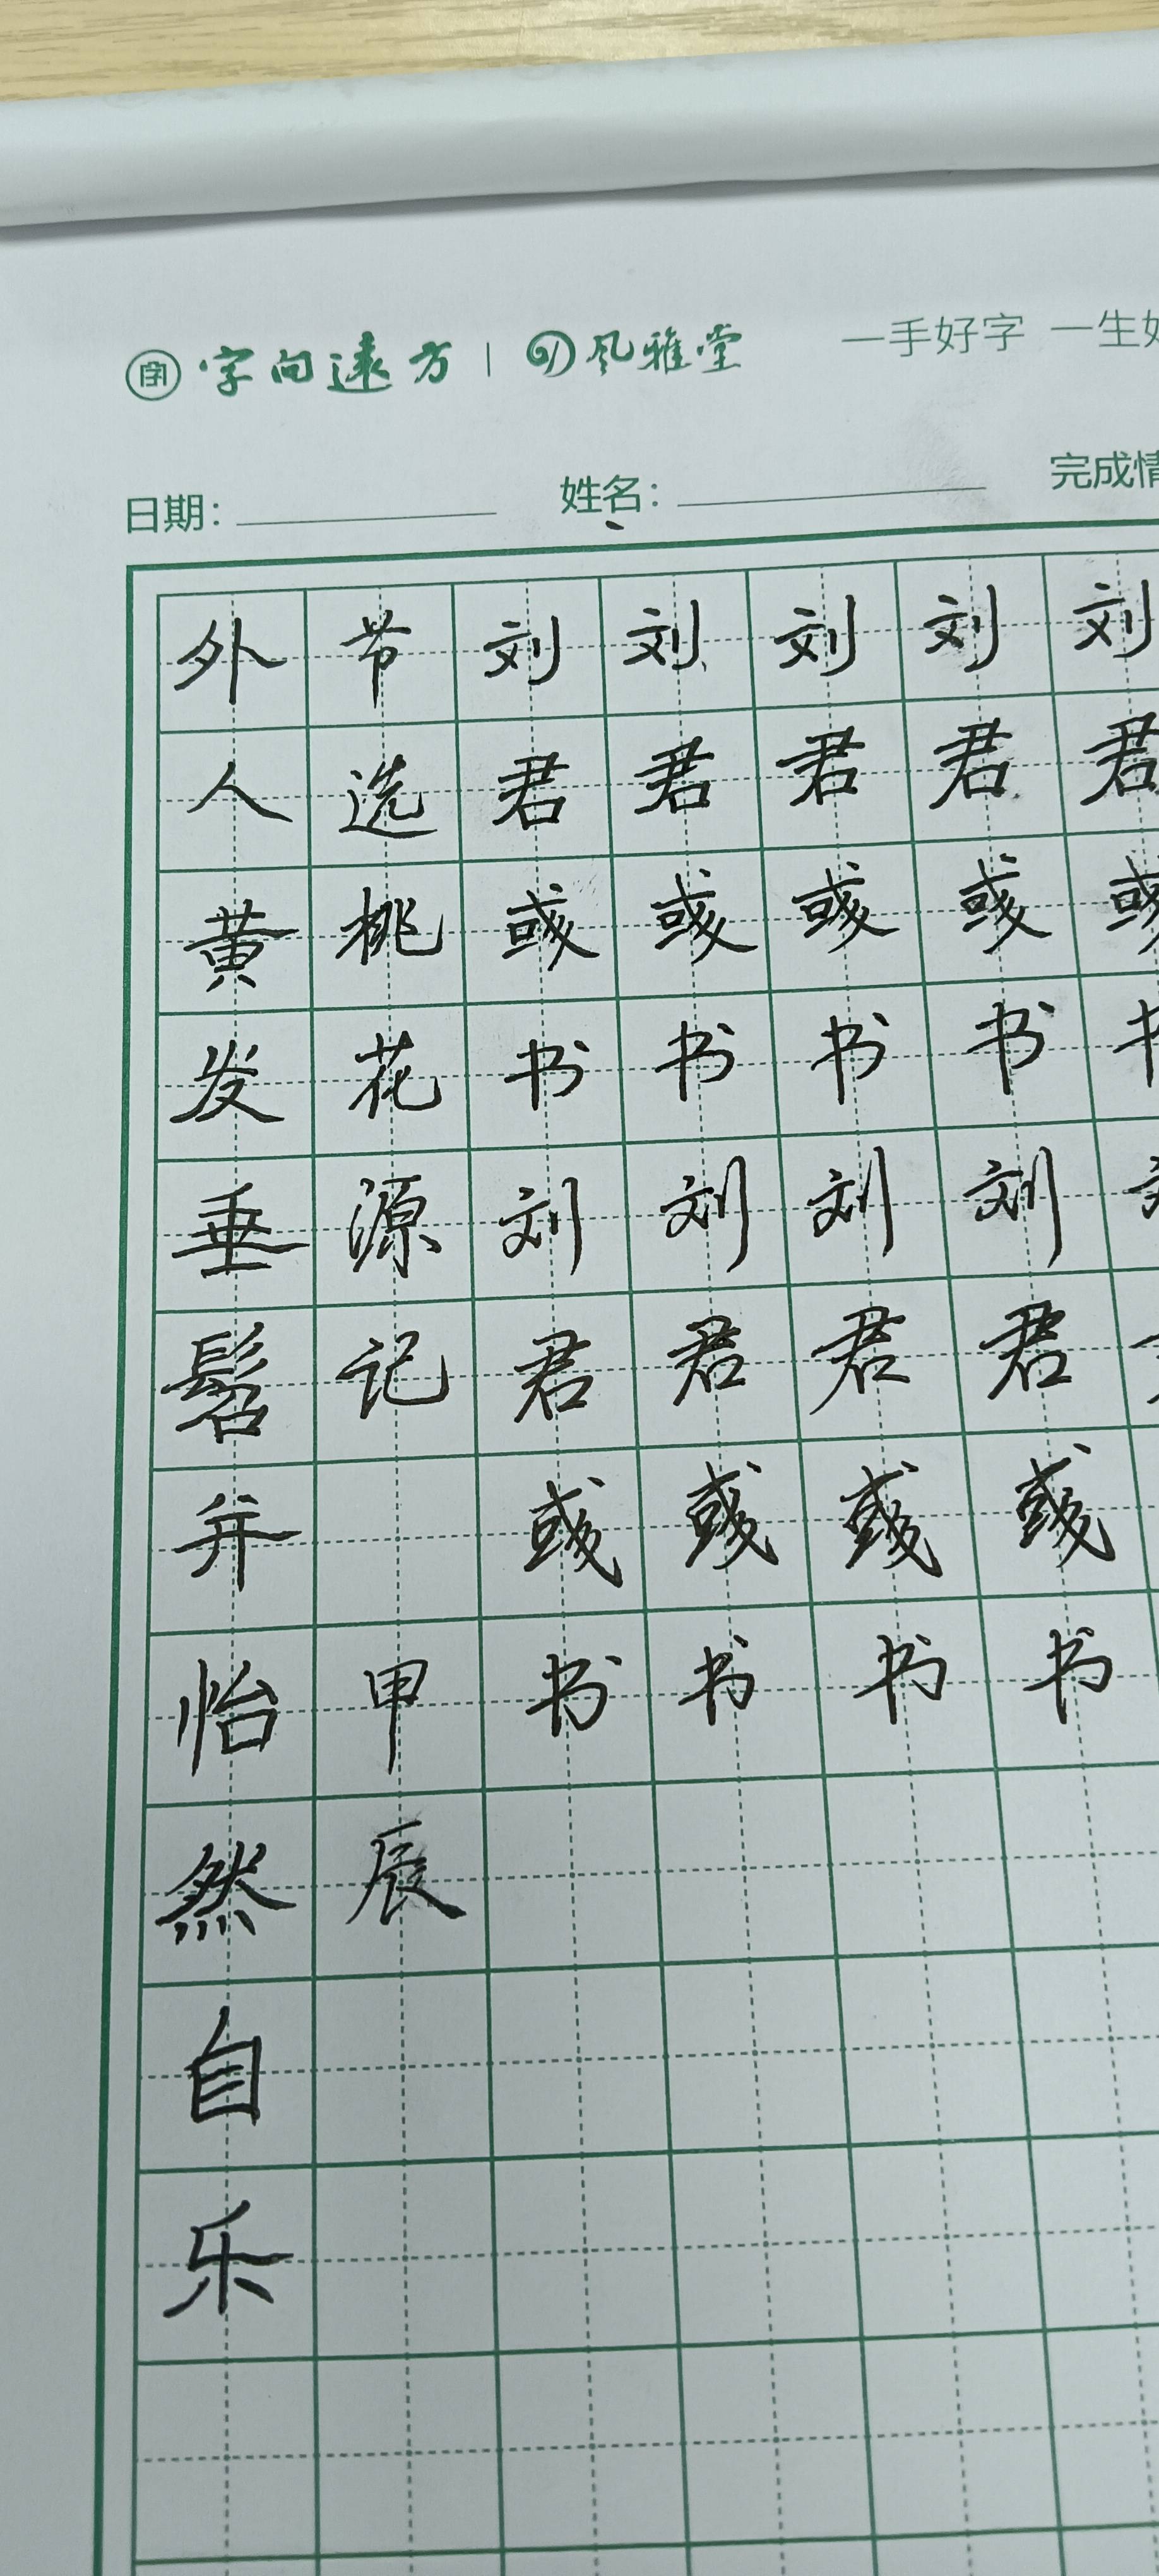 字 字向遠方 | 风雅堂 一手好字 一生
日期： 姓名： 完成
外人黄发垂髫并怡然自乐
节选桃花源记 甲辰
刘君彧书刘君彧书
刘君彧书刘君彧书
刘君彧书刘君彧书
刘君彧书刘君彧书
刘君彧